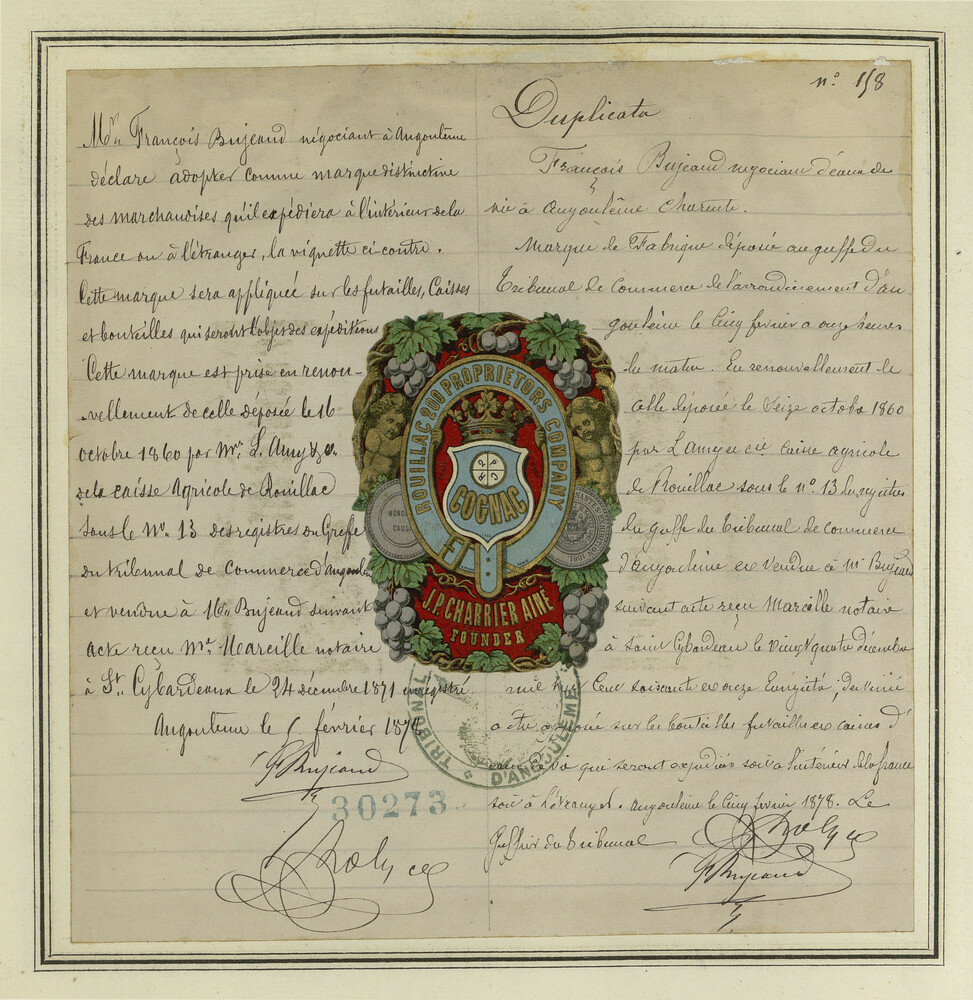 Mr. François Bujeaud négociant à Angoulême
déclare adopter comme marque distinctive
des marchandises qu'il expédiera à l'intérieur de la
France ou à l'étranger, la vignette ci contre.
Cette marque sera appliquée sur les futailles, Caisses
et bouteilles qui seront l'objet des expéditions
Cette marque est prise en renou-
vellement de celle déposée le 16
octobre 1860 par Mr. L. Amy & Ce.
de la caisse Agricole de Rouillac
sous le No. 13 des registres du Greffe
du tribunal de Commerce d'Angoulême
et vendue à Mr. Bujeaud suivant
acte reçu Me. Marcille notaire
à St. Cybardeaux le 24 décembre 1871 enregistré
Angoulême le 5 février 1878
F. Bujeaud
30273
n.° 158
Duplicata
François Bujeaud négociant d'eaux de
vie à Angoulême Charente.
Marque de Fabrique déposée au greffe du
Tribunal de Commerce de l'arrondissement d'An
goulême le Cinq février à onze heures
du matin. En renouvellement de
celle déposée le Seize octobre 1860
par L. Amy et Cie caisse agricole
de Rouillac sous le n.° 13 des registres
du greffe du Tribunal de commerce
d'Angoulême et vendue à Mr Bujeaud
suivant acte reçu Marcille notaire
à Saint Cybardeau le vingt quatre décembre
mil huit Cent soixante et onze Enrégistré,
a être apposée sur les bouteilles futailles et caisses d'
eaux de vie qui seront expédiées soit à l'intérieur de la france
soit à l'étranger. Angoulême le Cinq fevrier 1878. Le
Greffier du Tribunal
F. Bujeaud
ROUILLAC 200 PROPRIETORS COMPANY
COGNAC
J.P. CHARRIER AINÉ
FOUNDER
TRIBUNAL
D'ANGOULEME